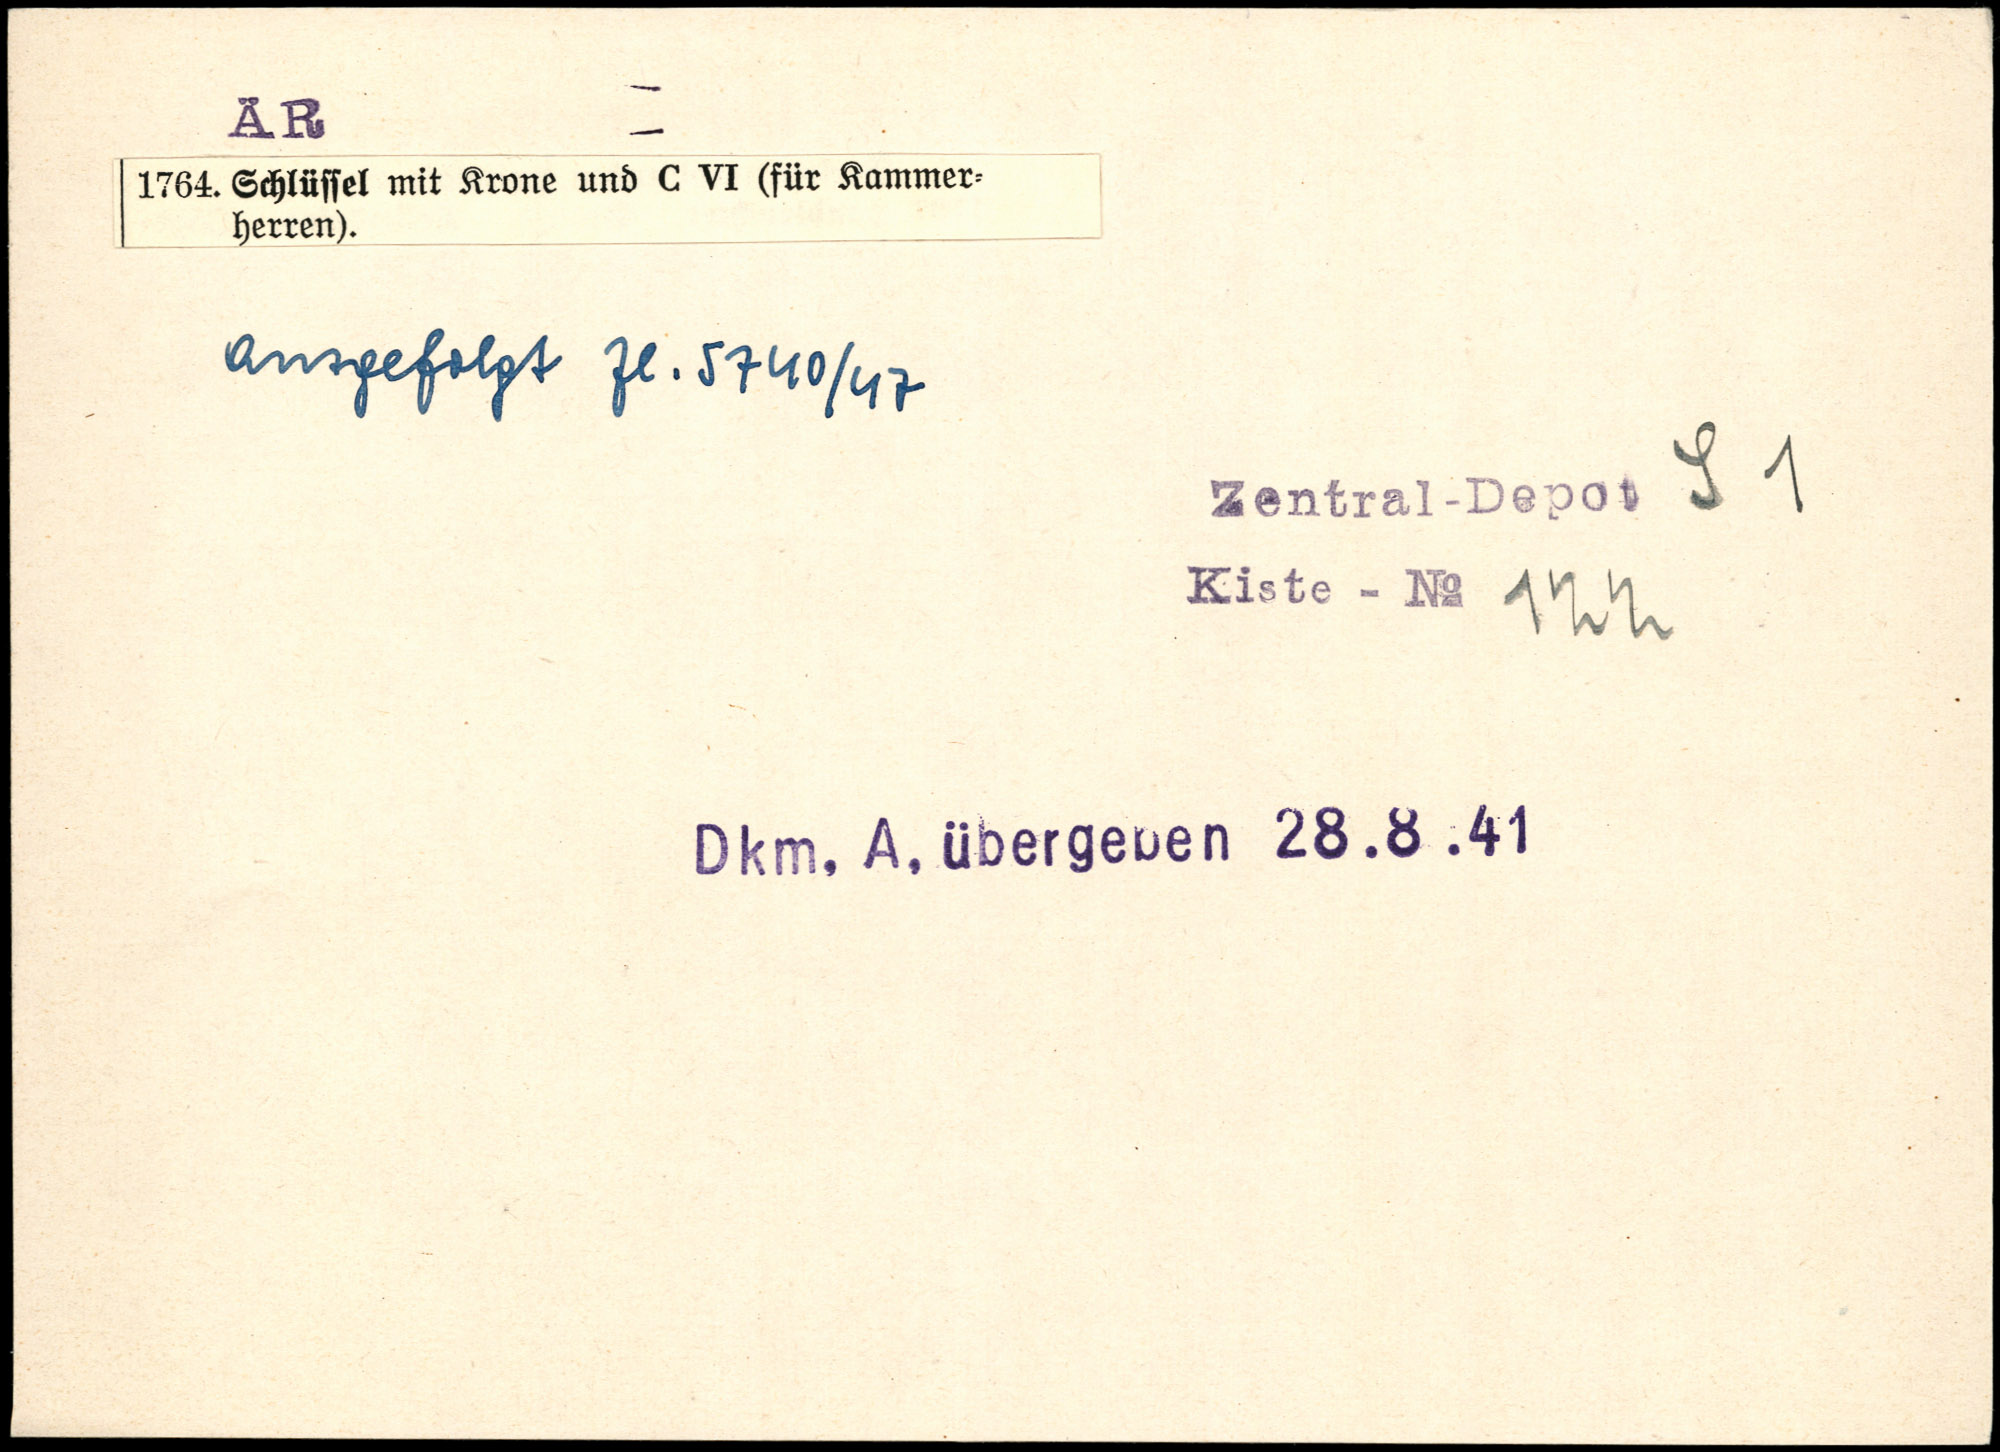 ÄR
1764. Schlüssel mit Krone und C VI (für Kammer-
herren).
ausgefolgt Zl. 5740/47
Zentral-Depot S 1
Kiste - No 122
Dkm. A. übergeben 28.8.41